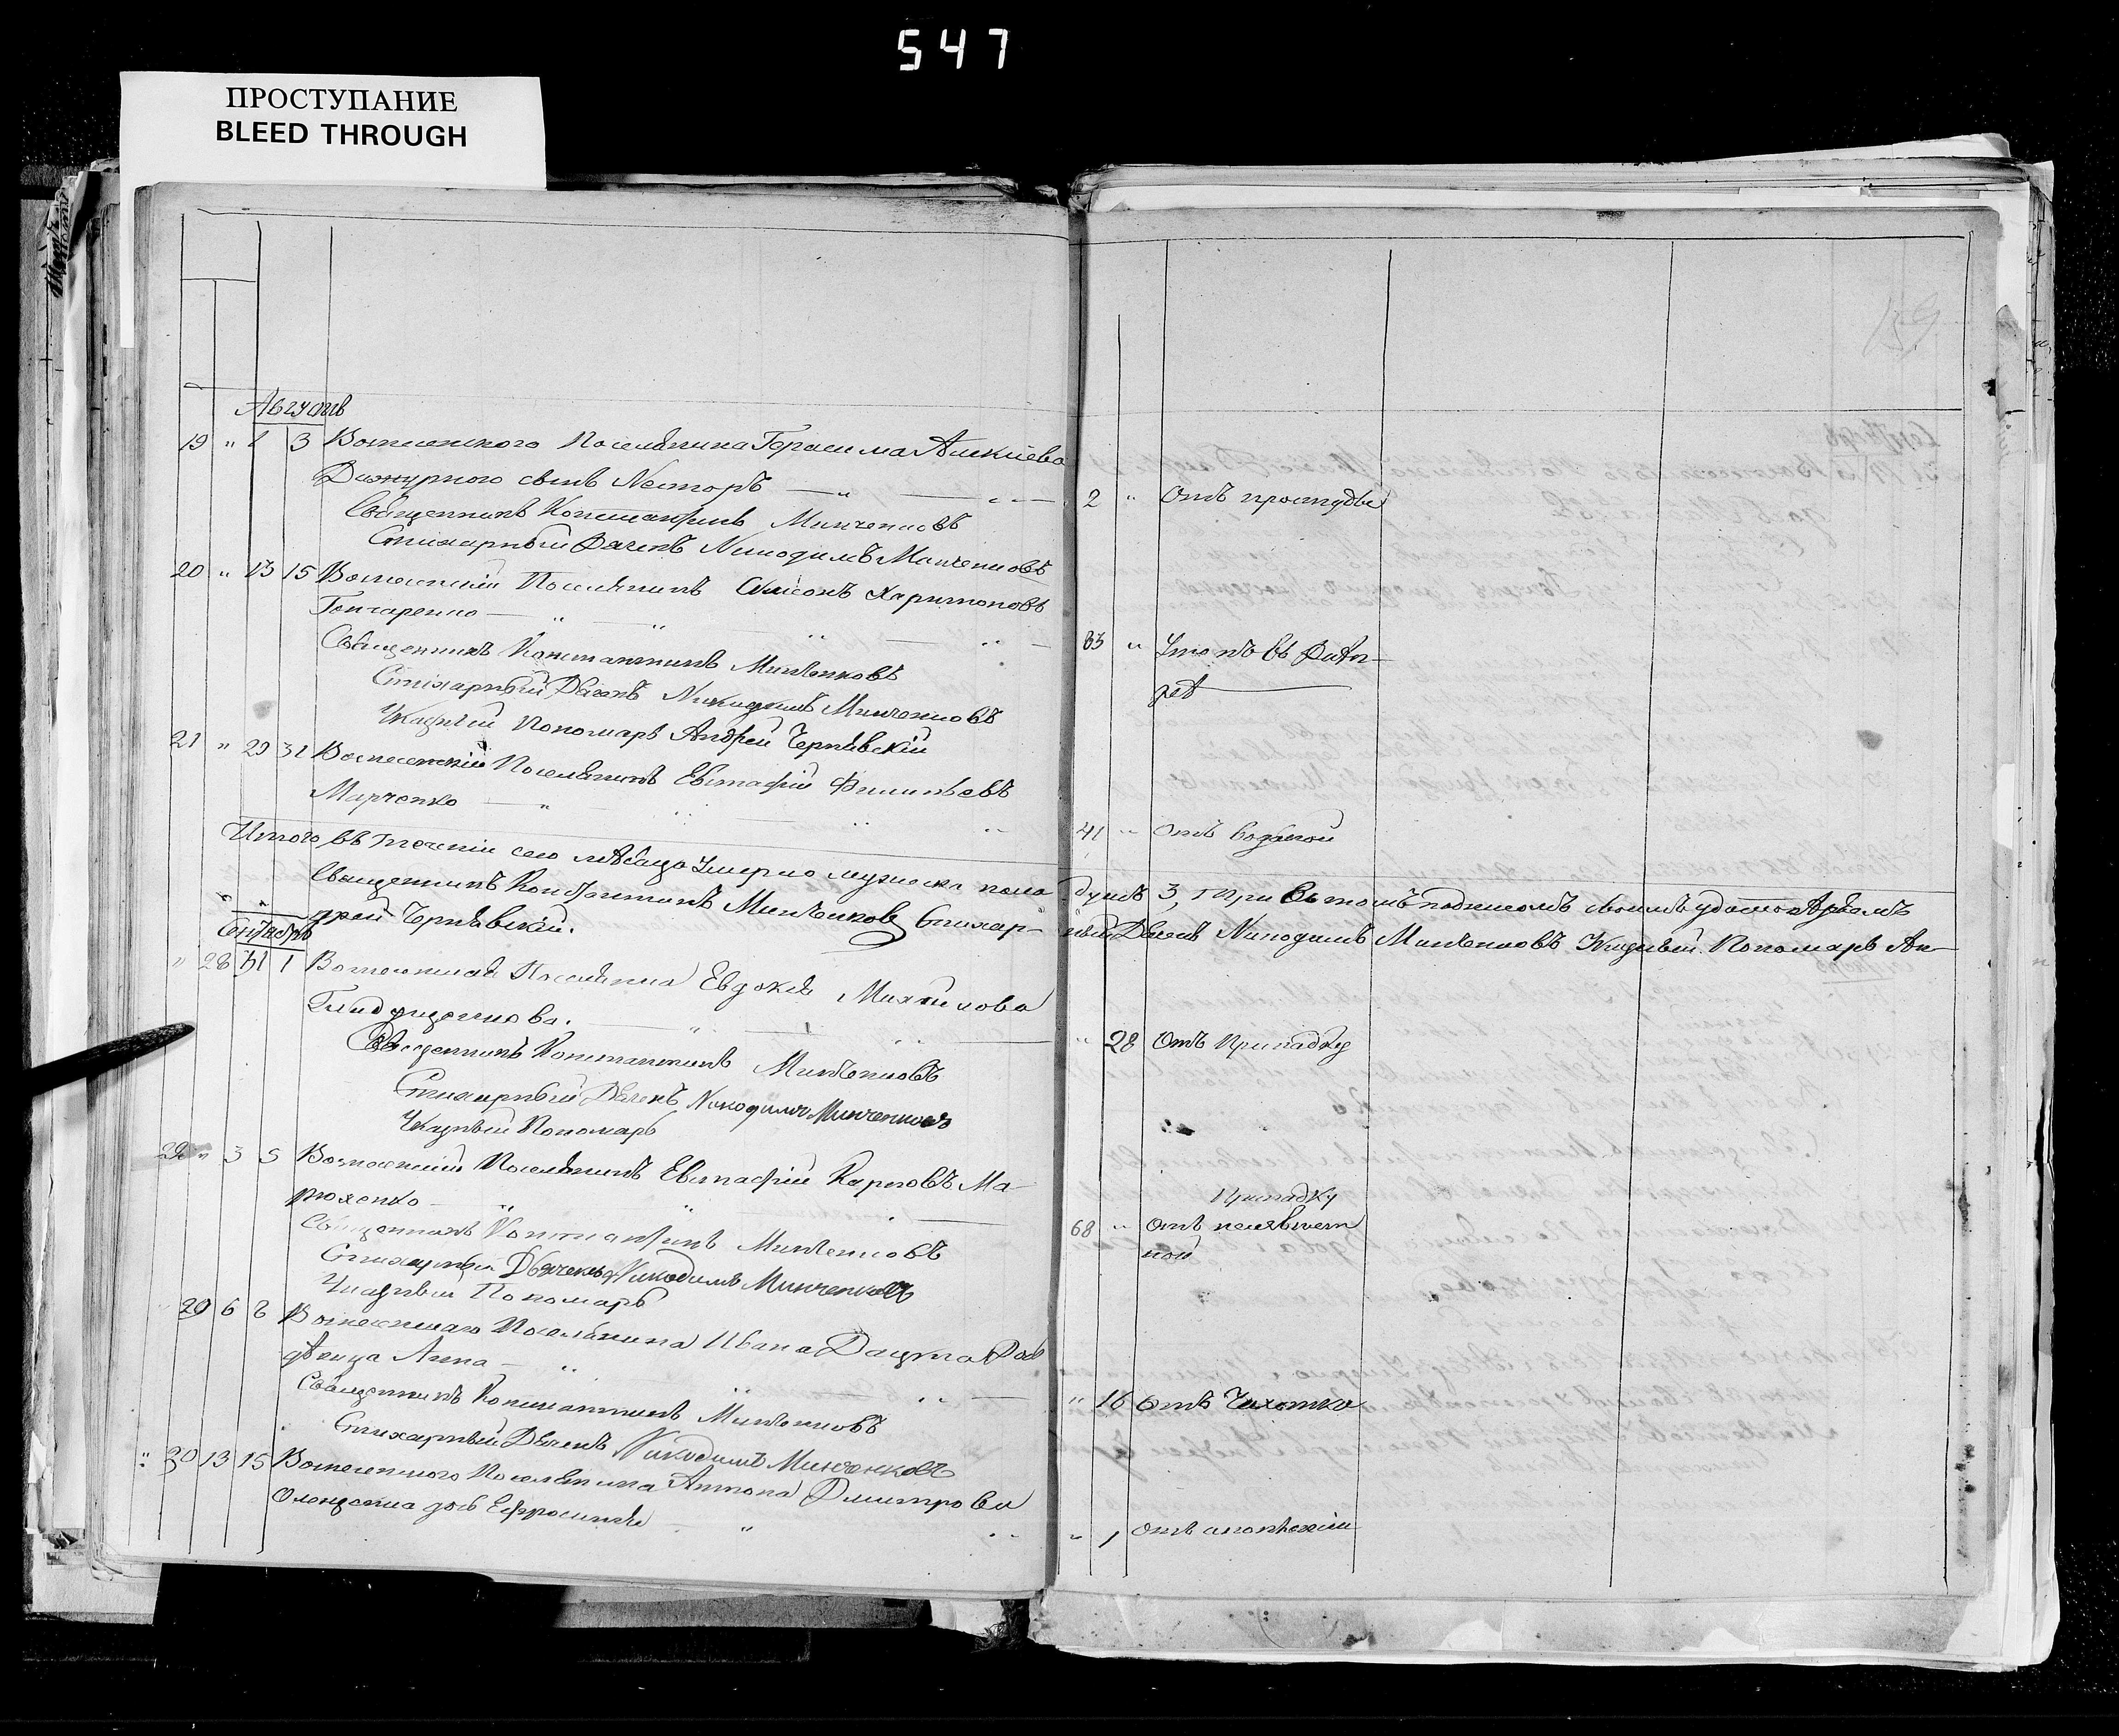 547
ПРОСТУПАНИЕ
BLEED THROUGH
159
Августъ
19 " 1 3 Вознесенского Поселянина Герасима Алексіева
Дижурного сынъ Несторъ — " — " — 2 " Отъ простуды
Священникъ Константинъ Минченковъ
Стихарный Дячекъ Никодимъ Минченковъ
20 " 13 15 Вознесенскій Поселянинъ Самсонъ Харитоновъ
Гончаренко — " — " — " — " — 33 "
Священникъ Константинъ Минченковъ
Стихарный Дячекъ Никодимъ Минченковъ
Указный Пономарь Андрей Чернявскій
21 " 29 31 Вознесенскій Поселянинъ Евстафій Филипьевъ
Марченко — " " " " 41 " Отъ водяной
Итого въ теченіи сего мѣсяца Умерло мужеска пола душъ 3, три Въ томъ подписомъ своимъ удостовѣряемъ
Священникъ Константинъ Минченковъ Стихарный Дячекъ Никодимъ Минченковъ Указный Пономарь Ан-
дрей Чернявскій.
Сентябрь
" 28 1 Вознесенская Поселянка Евдокія Михайлова
" 28 Отъ Припадку
Священникъ Константинъ Минченковъ
Стихарный Дячекъ Никодимъ Минченковъ
Указный Пономарь
22 " 3 5 Вознесенскій Поселянинъ Евстафій Карповъ Ма-
тюхенко — " " " — 68 " Отъ
Припадку
Священникъ Константинъ Минченковъ
Стихарный Дьячекъ Никодимъ Минченковъ
Указный Пономарь
" 29 6 8 Вознесенского Поселянина Ивана Дацука
дѣвица Анна — " " " " — " 16 Отъ Чахотки
Священникъ Константинъ Минченковъ
Стихарный Дячекъ Никодимъ Минченковъ
" 30 13 15 Вознесенского Поселянина Антона Дмитрова
дочь Ефросинія — " " " " 1 Отъ